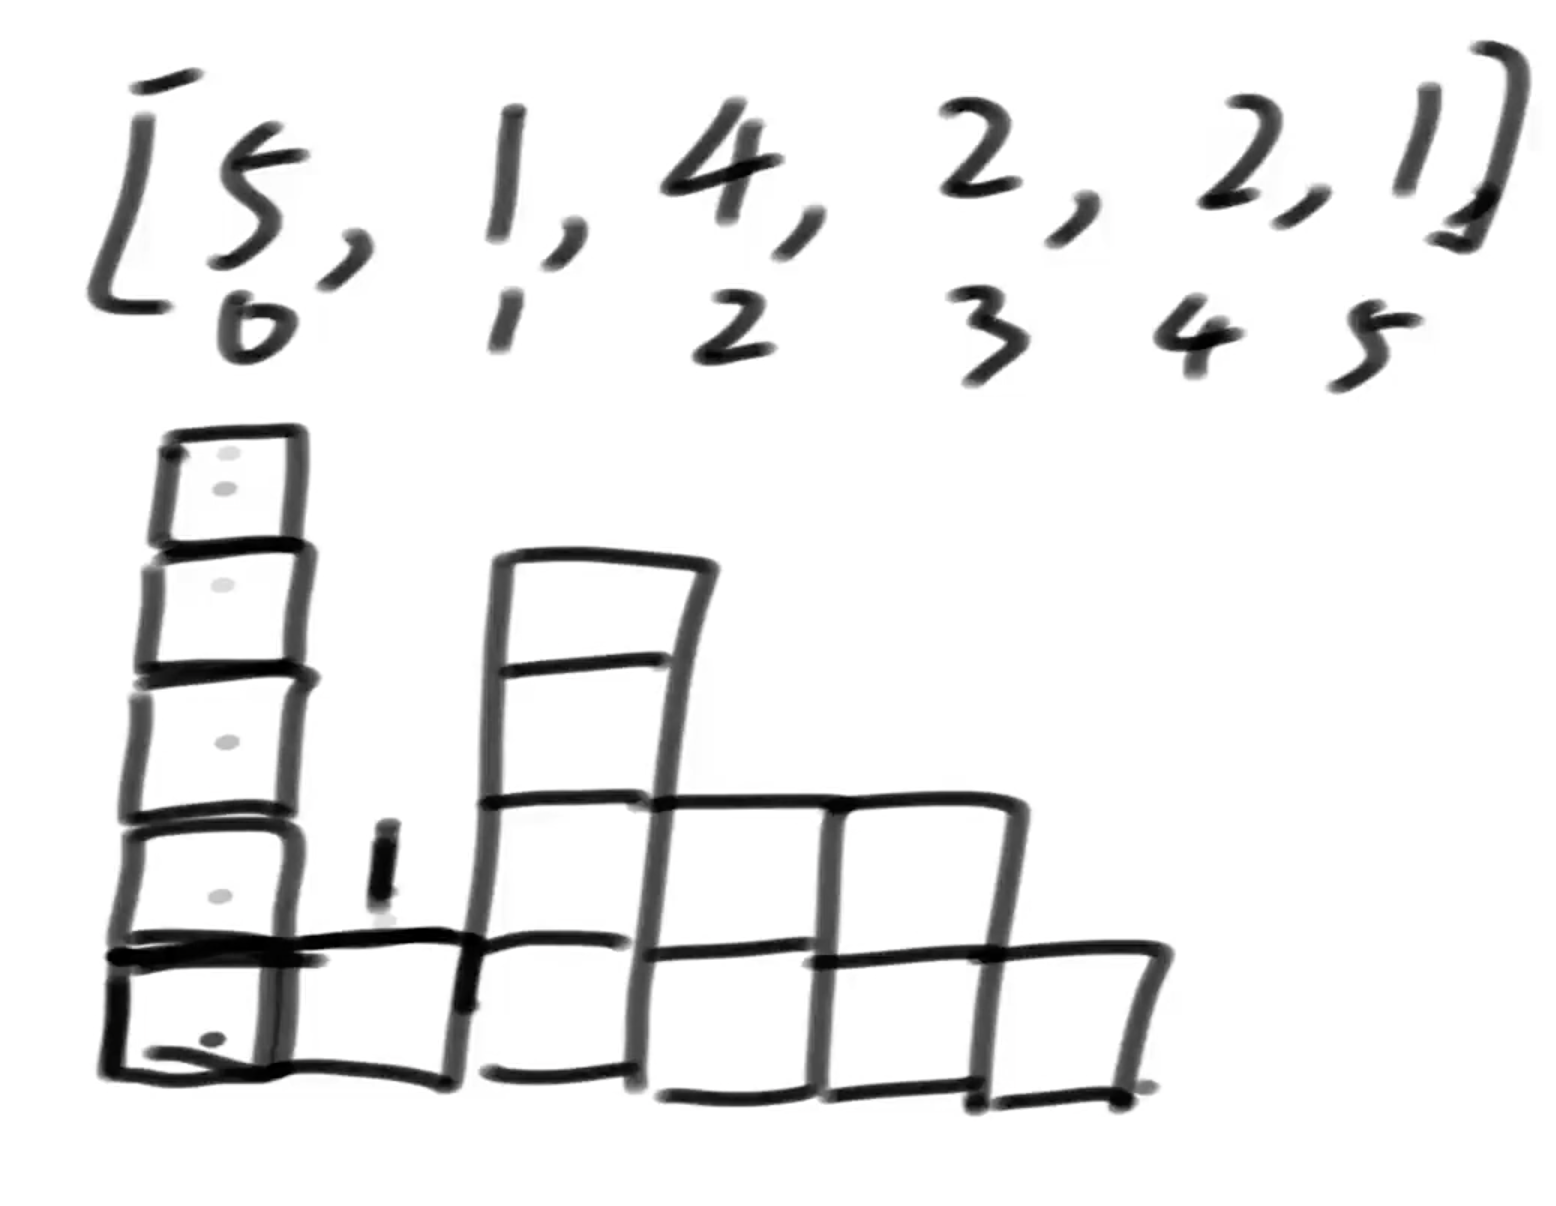 [5, 1, 4, 2, 2, 1]
0 1 2 3 4 5
1